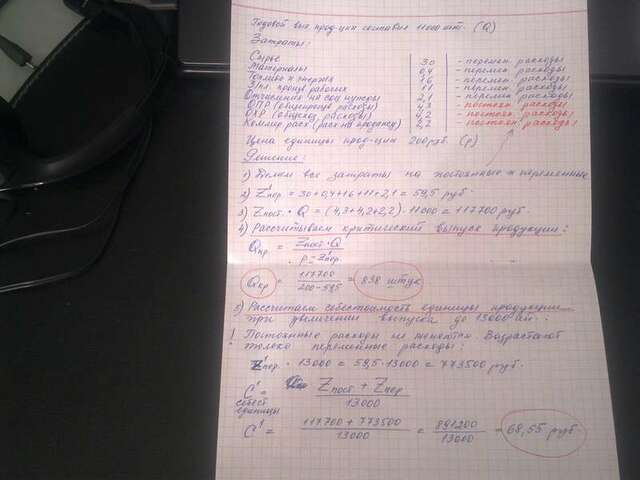 Годовой вып. прод-ции составил 11000 шт. (Q)
Затраты:
Сырье | 30 | - перемен. расходы
Материалы | 0,4 | - перемен. расходы
Топливо и энергия | 16 | - перемен. расходы
З/пл произв. рабочих | 11 | - перемен. расходы
Отчисления на соц нужды | 2,1 | - перемен. расходы
ОПР (общепроизв. расходы) | 4,3 | - постоян. расходы
ОХР (общехоз. расходы) | 4,2 | - постоян. расходы
Коммер. расх. (расх на продажу) | 2,2 | - постоян. расходы
Цена единицы прод-ции 200 руб. (p)
Решение:
1) Делим все затраты на постоянные и переменные
2) Z'пер = 30+0,4+16+11+2,1 = 59,5 руб.
3) Zпост. • Q = (4,3+4,2+2,2) • 11000 = 117700 руб.
4) Рассчитываем критический выпуск продукции:
Qкр = Zпост • Q / p - Z'пер.
Qкр = 117700 / 200-59,5 = 838 штук
5) Рассчитаем себестоимость единицы продукции
при увеличении выпуска до 13000 шт.:
! Постоянные расходы не меняются. Возрастают
только переменные расходы:
Z'пер. • 13000 = 59,5 • 13000 = 773500 руб.
C' себест. единицы = Zпост + Zпер / 13000
C' = 117700 + 773500 / 13000 = 891200 / 13000 = 68,55 руб.